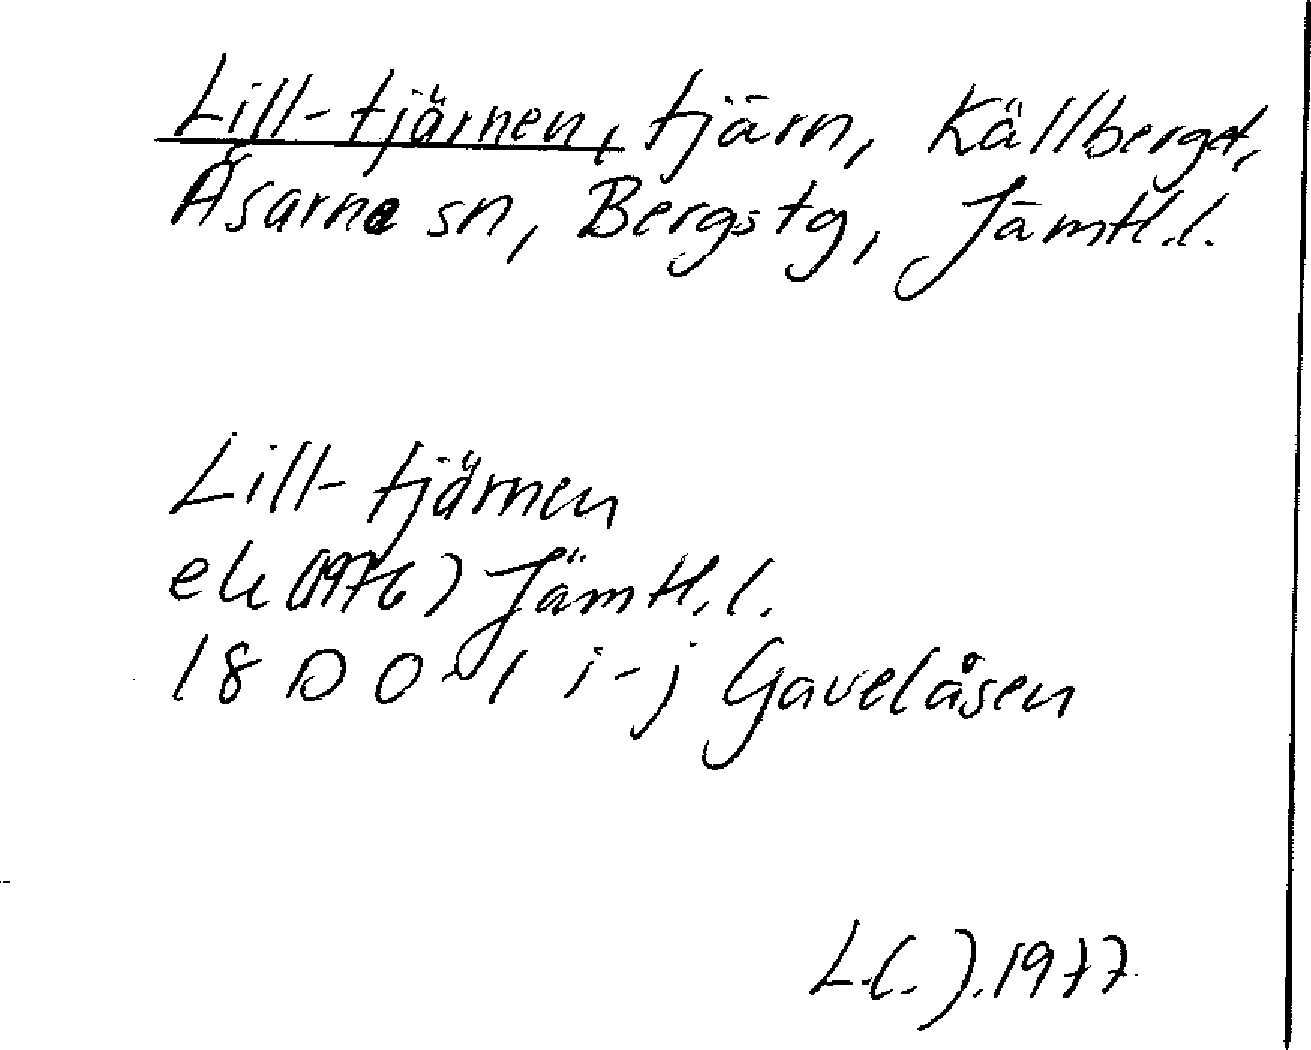 Lill-tjärnen, tjärn, Källberget,
Åsarne sn, Bergs tg, Jämtl.l.
Lill-tjärnen
ek (1976) Jämtl.l.
18 D 0-1 i-j Gavelåsen
L.C.J. 1977